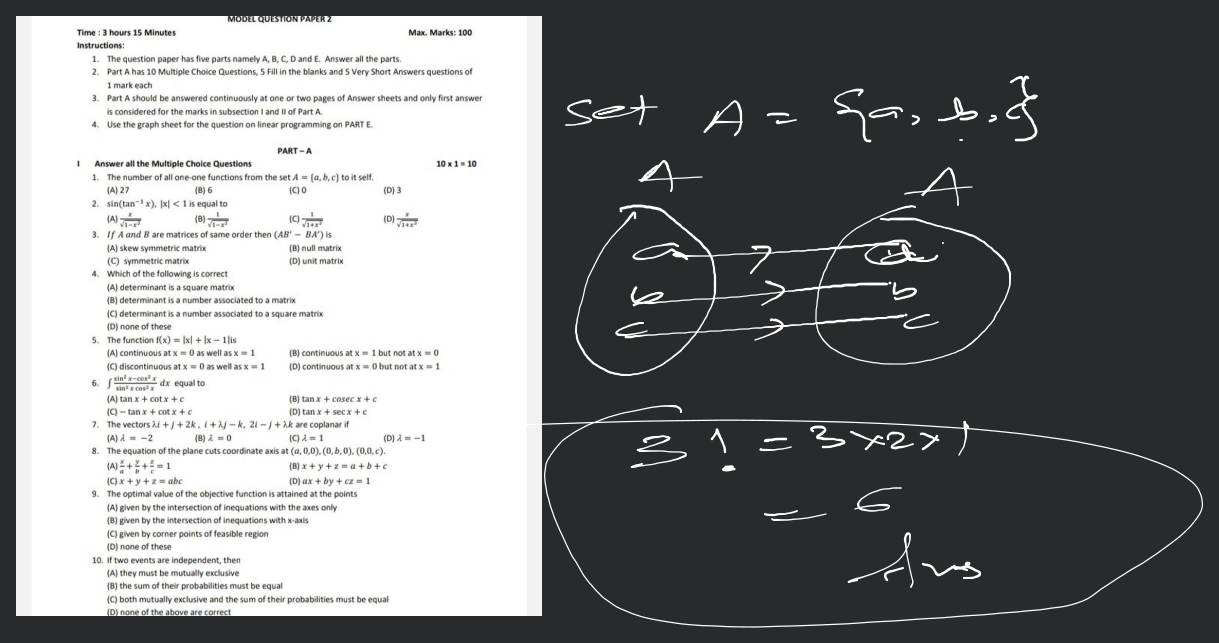 MODEL QUESTION PAPER 2
Time : 3 hours 15 Minutes Max. Marks: 100
Instructions:
1. The question paper has five parts namely A, B, C, D and E. Answer all the parts.
2. Part A has 10 Multiple Choice Questions, 5 Fill in the blanks and 5 Very Short Answers questions of
1 mark each
3. Part A should be answered continuously at one or two pages of Answer sheets and only first answer
is considered for the marks in subsection I and II of Part A.
4. Use the graph sheet for the question on linear programming on PART E.
PART – A
I Answer all the Multiple Choice Questions 10 x 1 = 10
1. The number of all one-one functions from the set A = {a, b, c} to it self.
(A) 27 (B) 6 (C) 0 (D) 3
2. sin(tan⁻¹ x), |x| < 1 is equal to
(A) x/√1−x² (B) 1/√1−x² (C) 1/√1+x² (D) x/√1+x²
3. If A and B are matrices of same order then (AB′ − BA′) is
(A) skew symmetric matrix (B) null matrix
(C) symmetric matrix (D) unit matrix
4. Which of the following is correct
(A) determinant is a square matrix
(B) determinant is a number associated to a matrix
(C) determinant is a number associated to a square matrix
(D) none of these
5. The function f(x) = |x| + |x − 1|is
(A) continuous at x = 0 as well as x = 1 (B) continuous at x = 1 but not at x = 0
(C) discontinuous at x = 0 as well as x = 1 (D) continuous at x = 0 but not at x = 1
6. ∫ sin² x−cos² x / sin² x cos² x dx equal to
(A) tan x + cot x + c (B) tan x + cosec x + c
(C) − tan x + cot x + c (D) tan x + sec x + c
7. The vectors λi + j + 2k , i + λj − k, 2i − j + λk are coplanar if
(A) λ = −2 (B) λ = 0 (C) λ = 1 (D) λ = −1
8. The equation of the plane cuts coordinate axis at (a, 0,0), (0, b, 0), (0,0, c).
(A) x/a + y/b + z/c = 1 (B) x + y + z = a + b + c
(C) x + y + z = abc (D) ax + by + cz = 1
9. The optimal value of the objective function is attained at the points
(A) given by the intersection of inequations with the axes only
(B) given by the intersection of inequations with x-axis
(C) given by corner points of feasible region
(D) none of these
10. If two events are independent, then
(A) they must be mutually exclusive
(B) the sum of their probabilities must be equal
(C) both mutually exclusive and the sum of their probabilities must be equal
(D) none of the above are correct
set A = {a, b, c}
A A
a a
b b
c c
3! = 3×2×1
= 6
Ans